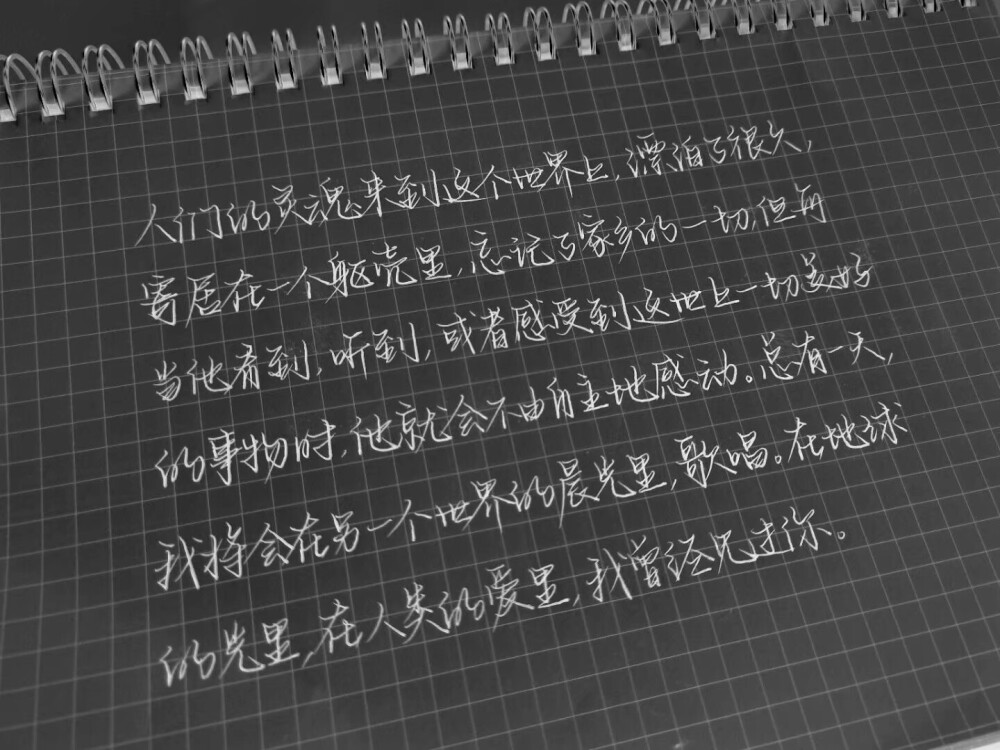 人们的灵魂来到这个世界上,漂泊了很久,
寄居在一个躯壳里,忘记了家乡的一切,但每
当他看到,听到,或者感受到这世上一切美好
的事物时,他就会不由自主地感动。总有一天,
我将会在另一个世界的晨光里,歌唱。在地球
的光里,在人类的爱里,我曾经见过你。